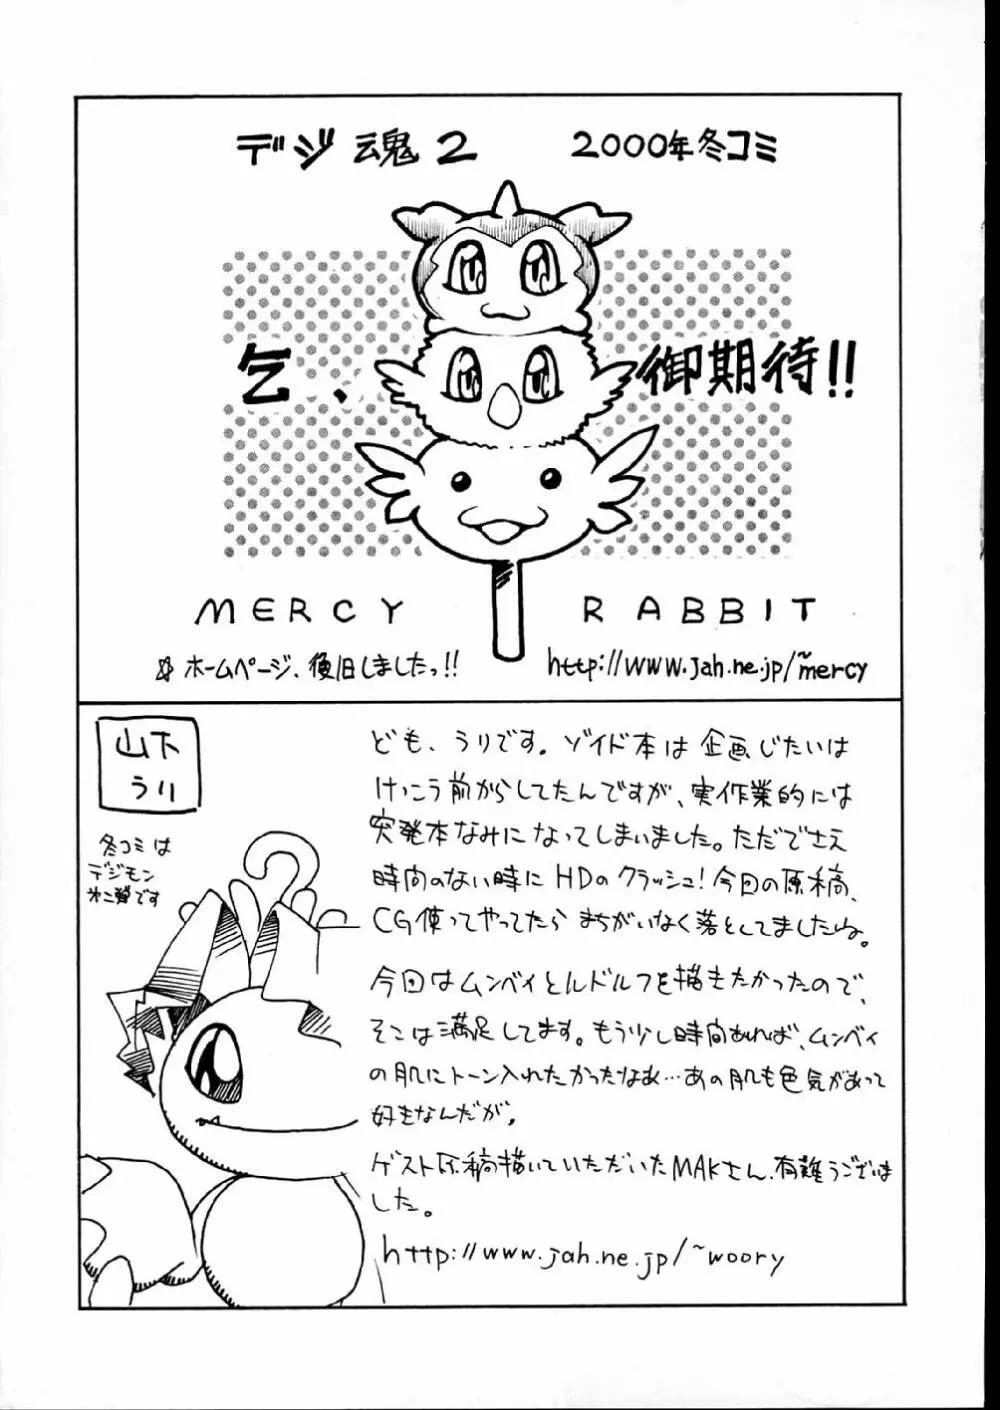 デジ魂2 2000年冬コミ
乞、御期待!!
MERCY RABBIT
☆ホームページ、復旧しましたっ!! http://www.jah.ne.jp/~mercy
山下
うり
冬コミは
デジモン
第二弾です
ども、うりです。ゾイド本は企画じたいは
けっこう前からしてたんですが、実作業的には
突発本なみになってしまいました。ただでさえ
時間のない時にHDのクラッシュ!今回の原稿、
CG使ってやってたらまちがいなく落としてましたね。
今回はムンベイとルドルフを描きたかったので、
そこは満足してます。もう少し時間あれば、ムンベイ
の肌にトーン入れたかったなぁ…あの肌も色気があって
好きなんだが。
ゲスト原稿描いていただいたMAKさん、有難うございま
した。
http://www.jah.ne.jp/~woory